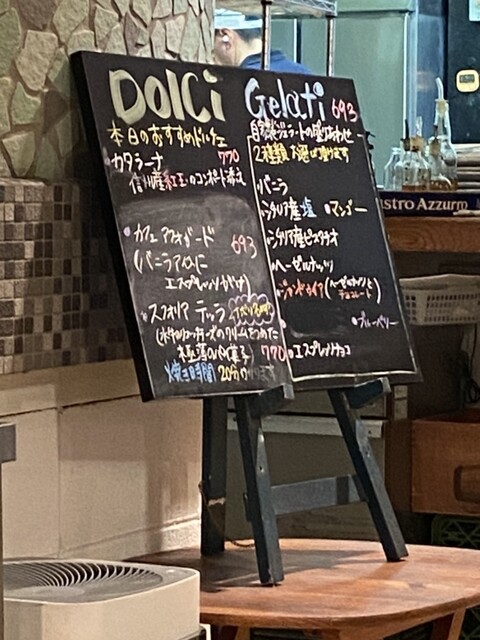 Dolci
本日のおすすめドルチェ
カタラーナ 770
信州産紅玉のコンポート添え
カフェ アフォガード 693
(バニラアイスに
エスプレッソがけ)
スフォリア テッラ
(リコッタチーズのクリームをつめた
極薄のパイ菓子 770
焼き時間 20分かかります
Gelati 693
自家製ジェラートの盛りあわせ
2種類お選び頂けます
バニラ
シチリア産塩 マンゴー
シチリア産ピスタチオ
ヘーゼルナッツ
ジャンドゥイア (ヘーゼルナッツと
チョコレート)
ブルーベリー
エスプレッソチョコ
Bistro Azzurro